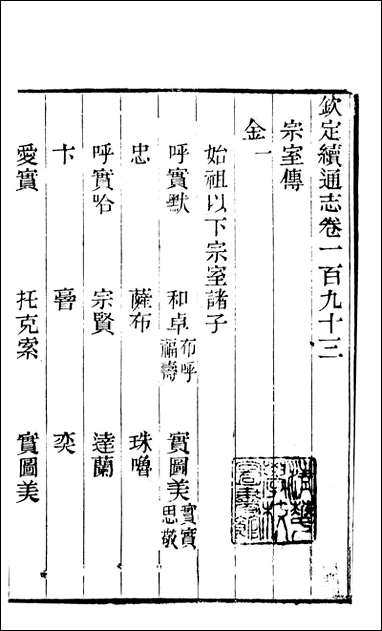 欽定續通志卷一百九十三
宗室傳
金一
始祖以下宗室諸子
呼實默 和卓布呼福壽 實圖美實實思敬
忠 薩布 珠嚕
呼實哈 宗賢 達蘭
卞 膏 奕
愛實 托克索 實圖美